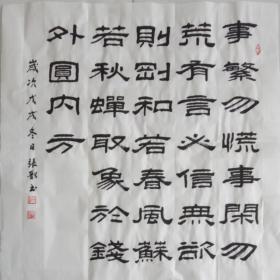 事繁勿慌事閑勿
荒有言必信無欲
則剛和若春風蘇
若秋蟬取象於錢
外圓内方
歲次戊戌冬日張书